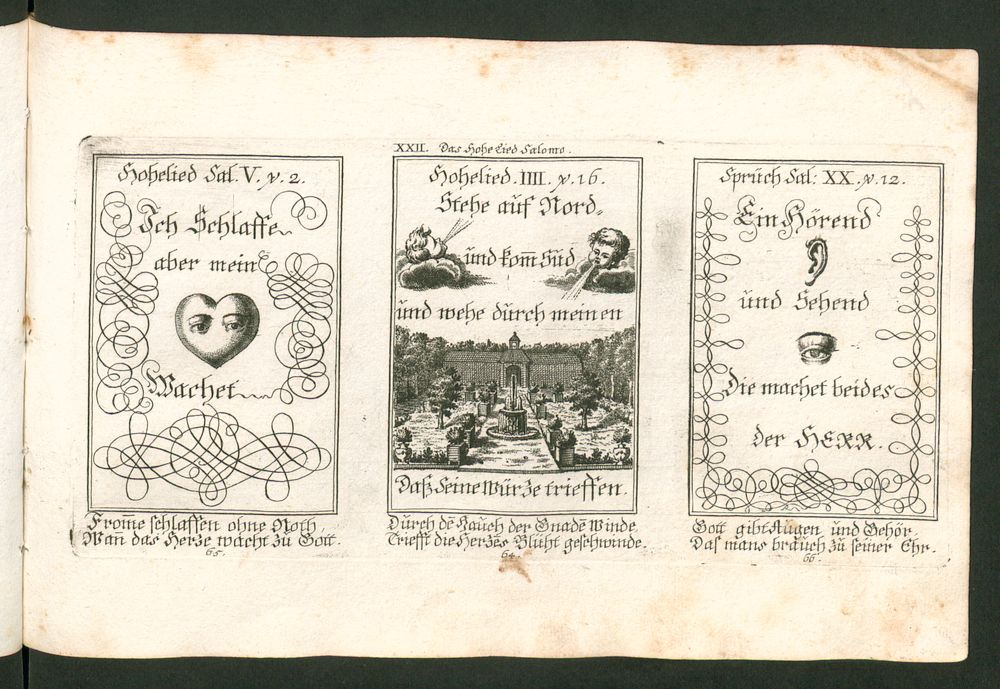 XXII. Das Hohe Lied Salomo.
Hohelied Sal. V. v. 2.
Ich Schlaffe
aber mein
Wachet
From̄e schlaffen ohne Noth,
Wan̄ das Herze wacht zu Gott.
65.
Hohelied. IIII. v. 16.
Stehe auf Nord,
und kom̄ Sud
und wehe durch meinen
Daß Seine Würze trieffen.
Durch dē Hauch der Gnadē Winde
Triefft die Herzēs Blüht geschwinde.
64.
Sprüch Sal: XX. v. 12.
Ein Hörend
und Sehend
Die machet beides
der HERR.
Gott gibt Augen und Gehör,
Das mans brauch zu seiner Ehr.
66.